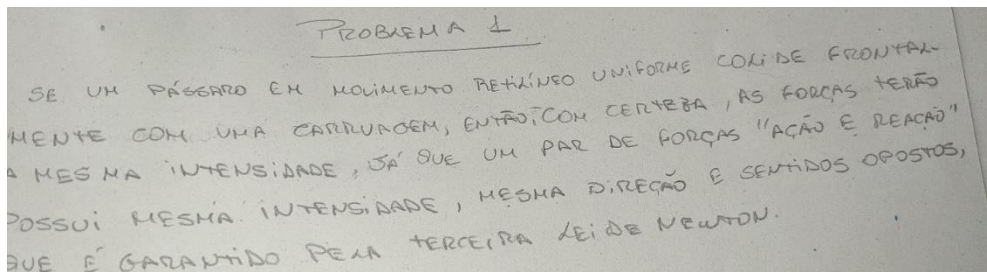 PROBLEMA 1
SE UM PÁSSARO EM MOVIMENTO RETILÍNEO UNIFORME COLIDE FRONTAL-
MENTE COM UMA CARRUAGEM, ENTÃO, COM CERTEZA, AS FORÇAS TERÃO
A MESMA INTENSIDADE, JÁ QUE UM PAR DE FORÇAS "AÇÃO E REAÇÃO"
POSSUI MESMA INTENSIDADE, MESMA DIREÇÃO E SENTIDOS OPOSTOS,
QUE É GARANTIDO PELA TERCEIRA LEI DE NEWTON.